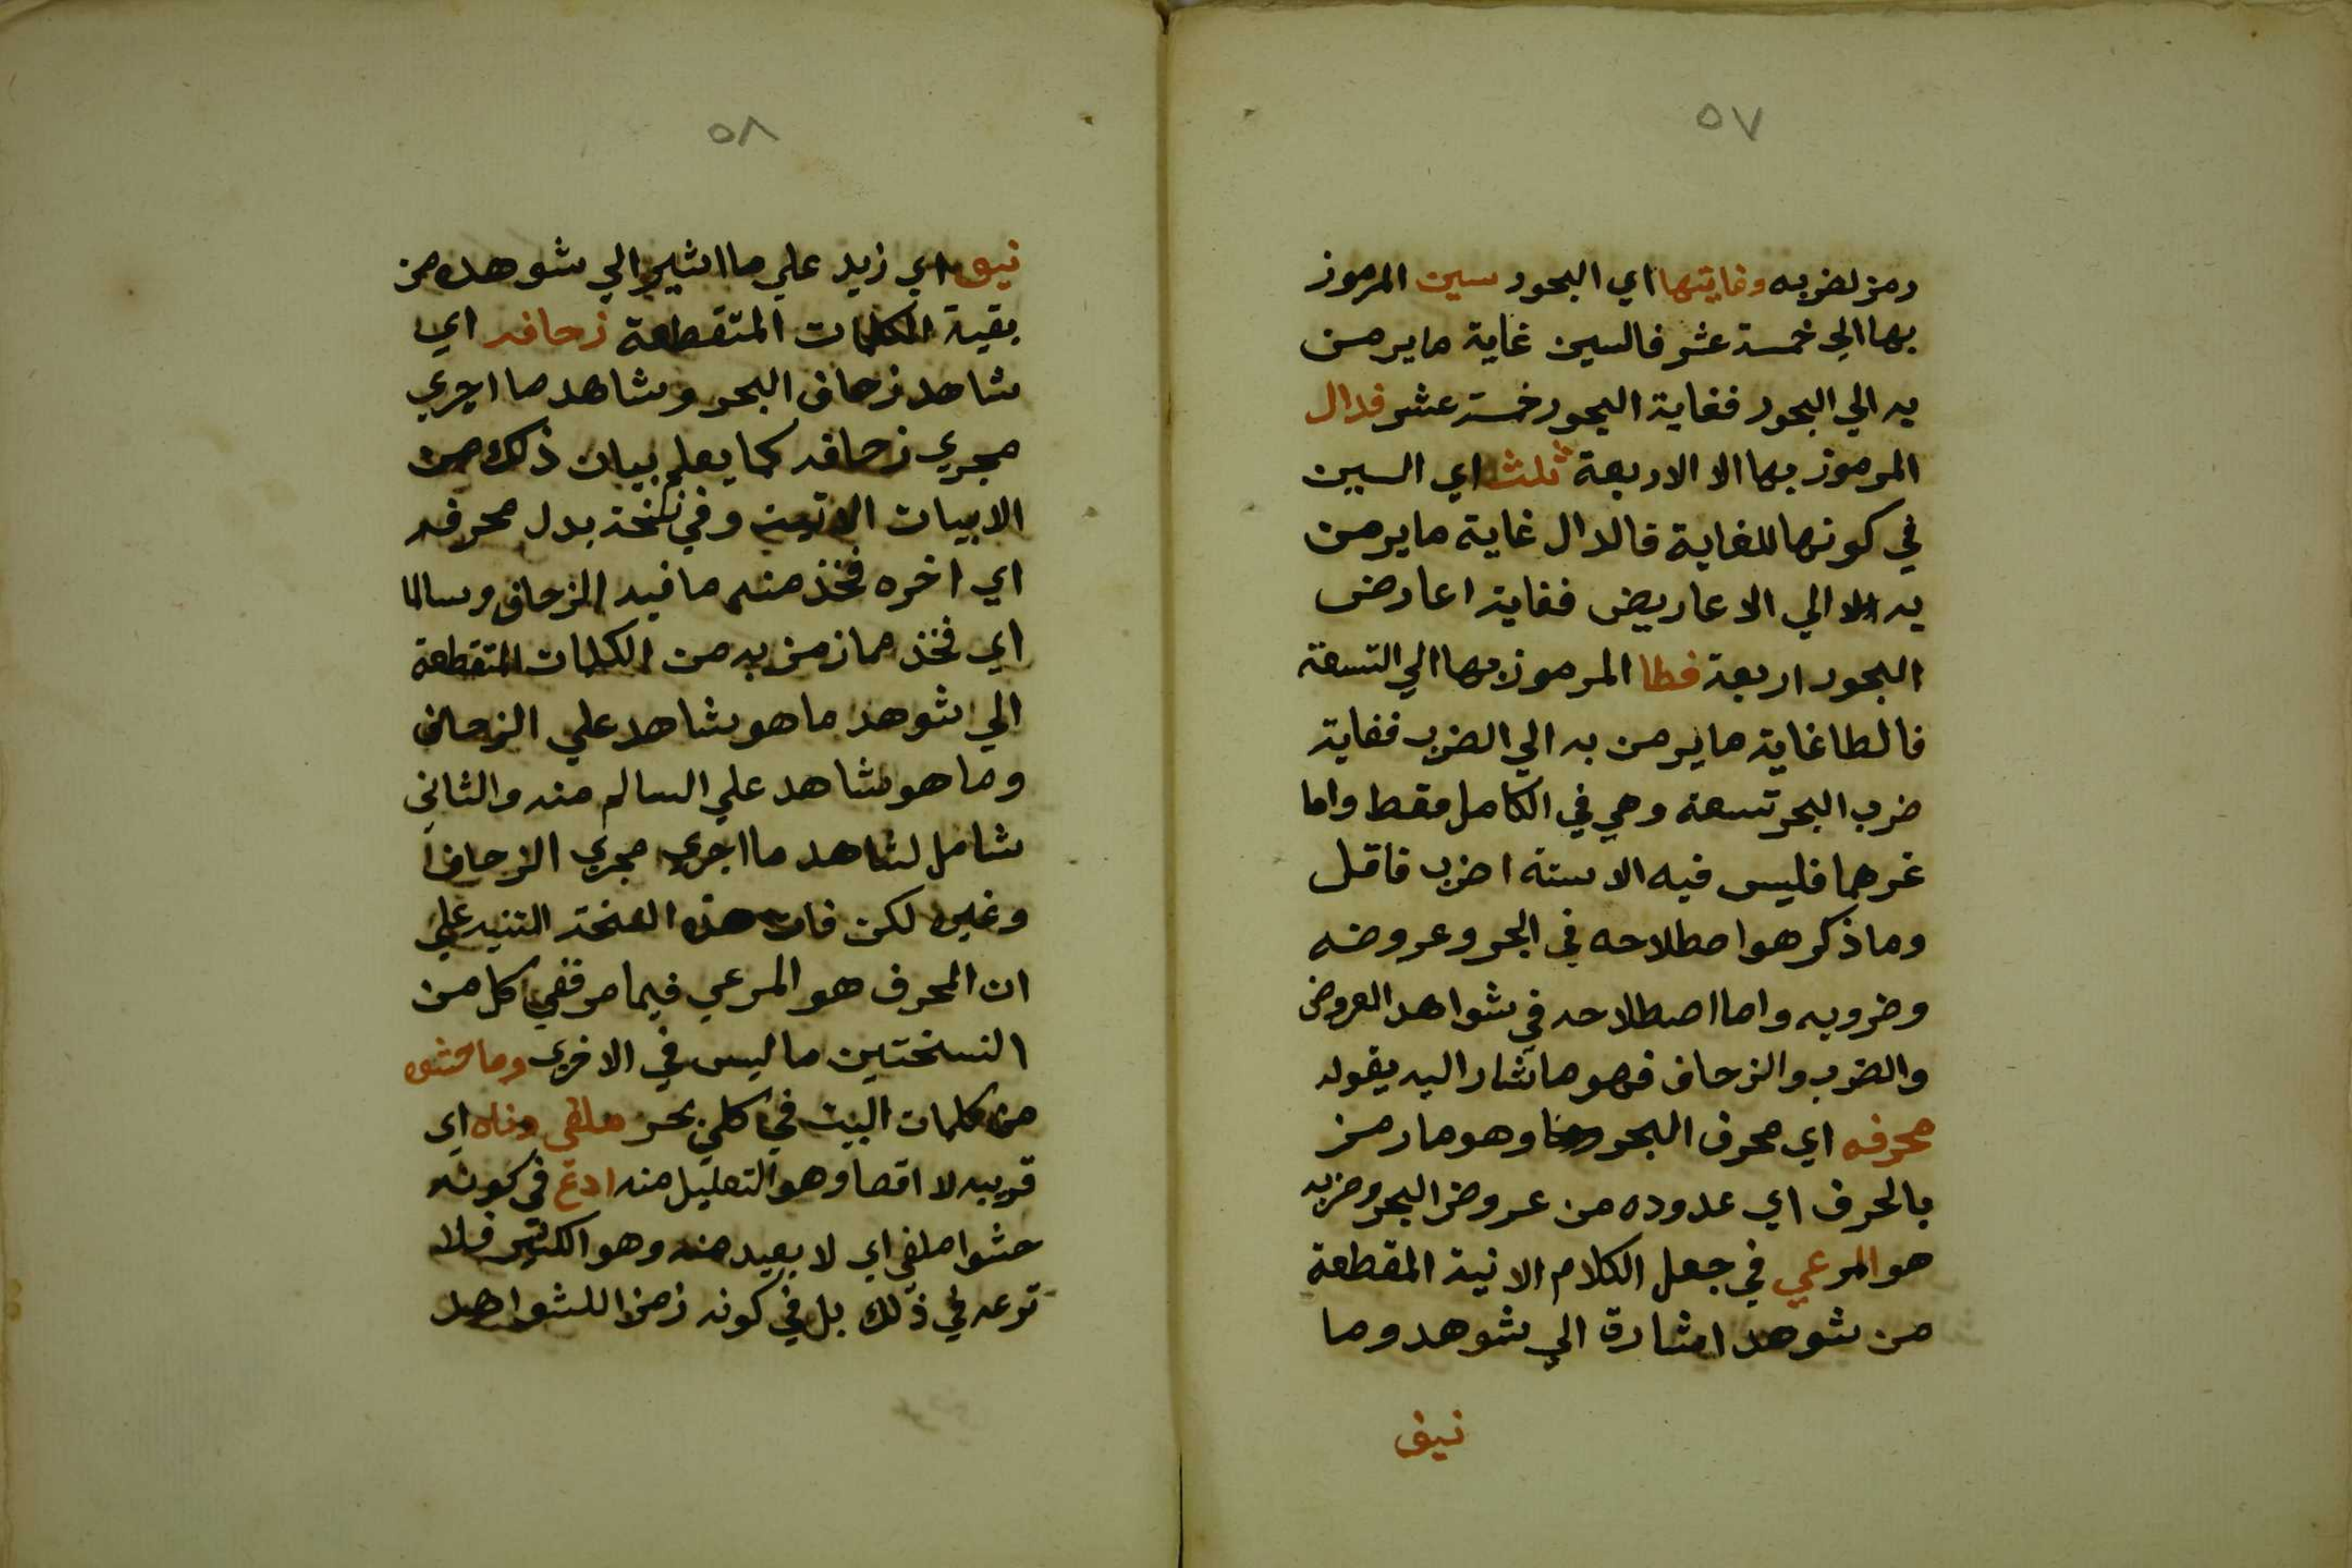 ٥٧
رمز لضربه وغايتها اي البحور سين المرموز
بها الي خمسة عشر فالسين غاية ما يرمن
به الي البحور فغاية البحور خمسة عشر فدال
المرموز بها الا الاربعة ثلث اي السين
في كونها للغاية فالدال غاية ما يرمن
به الا الي الاعاريض فغاية اعارض
البحور اربعة فطا المرموز بها الي التسعة
فالطا غاية ما يرمن به الي الضرب فغاية
ضرب البحر تسعة وهي في الكامل فقط واما
غرهما فليس فيه الا ستة اضرب فاقل
وما ذكر هو اصطلاحه في البحر وعروضه
وضروبه واما اصطلاحه في شواهد العروض
والضرب والزحاف فهو ما شار اليه بقوله
محرفه اي محرف البحر وهو ما رمز
بالحرف اي عدوده من عروض البحر وضربه
هو المرعي في جعل الكلام الاتية المقطعة
من شوهد اشارة الي شوهد وما
نيف
٥٨
نيف اي زيد علي ما اشير الي شوهده من
بقية الكلمات المتقطعة زحافه اي
شاهد زحاف البحر وشاهد ما اجري
مجري زحافه كما يعلم بيان ذلك من
الابيات الاتية وفي نسخة بدل محرفه
اي اخره فخذ منه ما فيه الزحاف وسالما
اي فخذ مما زمن به من الكلمات المتقطعة
الي شوهد ما هو شاهد علي الزحاف
وما هو شاهد علي السالم منه والثاني
شامل لشاهد ما اجري مجري الزحاف
وغيره لكن فات هذه النسخة التنبيه علي
ان المحرف هو المرعي فيما مر ففي كل من
النسختين ما ليس في الاخري وما حشو
من كلمات البيت في كل بحر ملغي دناه اي
قريبه لا اقصا وهو التعليل منه ادع في كونه
حشوا ملغي اي لا بعيد منه وهو الكثير فلا
ترعه في ذلك بل في كونه زمزا للشواهد